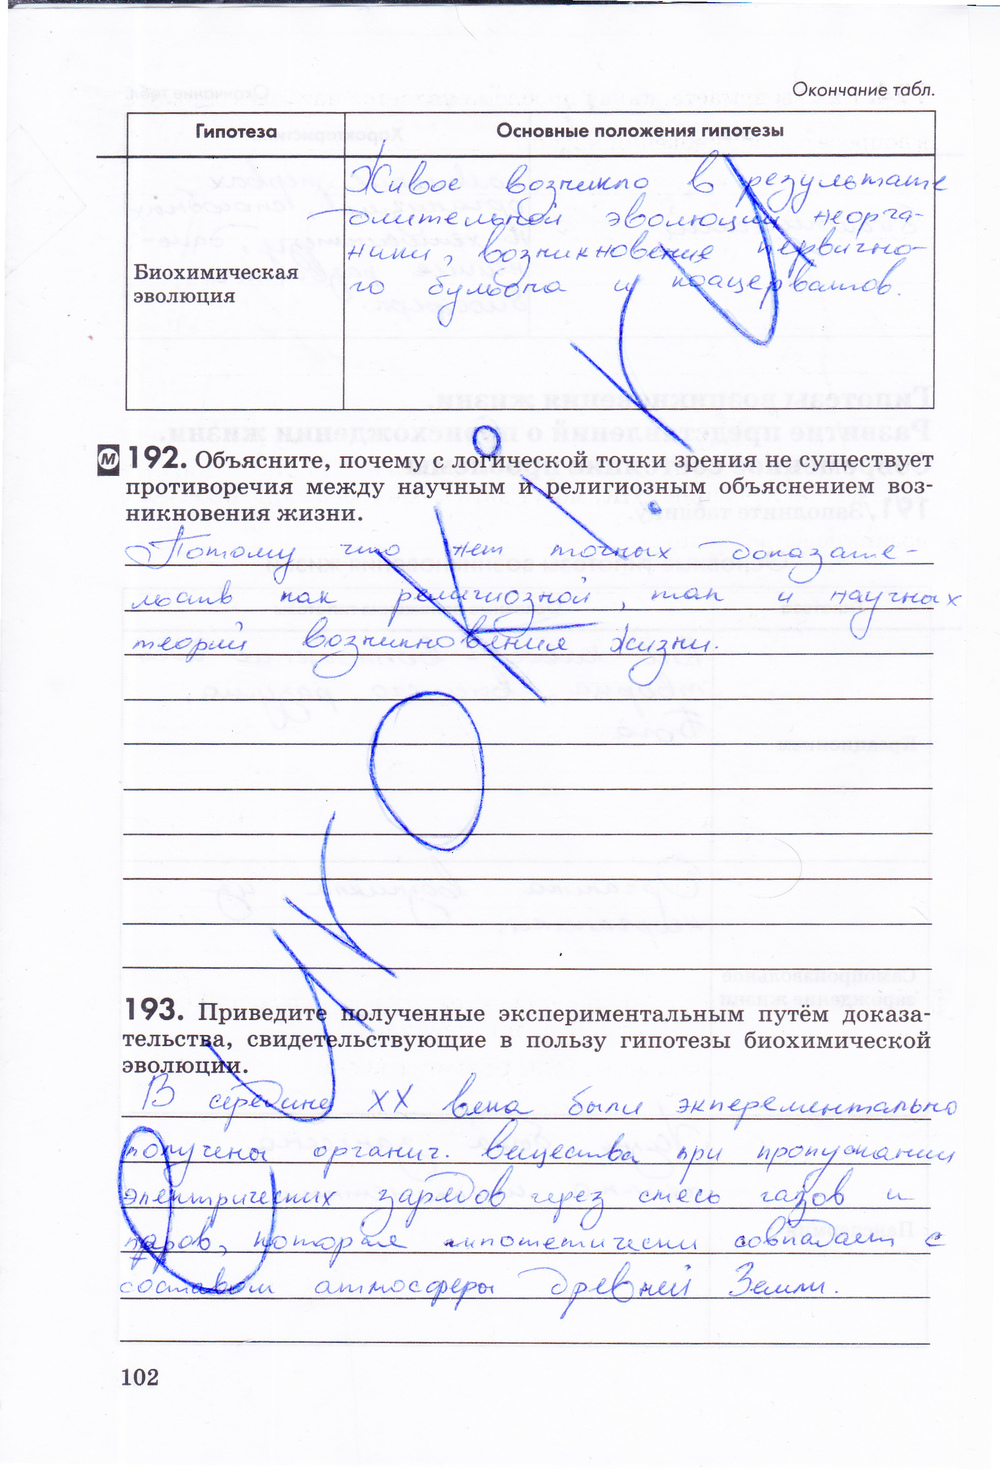 Окончание табл.
Гипотеза
Основные положения гипотезы
Биохимическая
эволюция
Живое возникло в результате
длительной эволюции неорга-
ники, возникновение первично-
го бульона и коацерватов.
М 192. Объясните, почему с логической точки зрения не существует
противоречия между научным и религиозным объяснением воз-
никновения жизни.
Потому что нет точных доказате-
льств как религиозной, так и научных
теорий возникновения жизни.
193. Приведите полученные экспериментальным путём доказа-
тельства, свидетельствующие в пользу гипотезы биохимической
эволюции.
В середине XX века были экперементально
получены органич. вещества при пропускании
электрических зарядов через смесь газов и
паров, которые гипотетически совпадает с
составом атмосферы древней Земли.
102